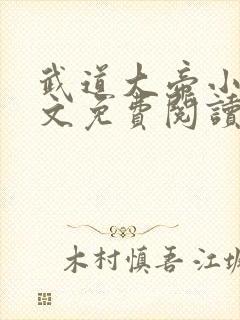 武道大帝小
文免費閱讀
木村慎吾·江坂